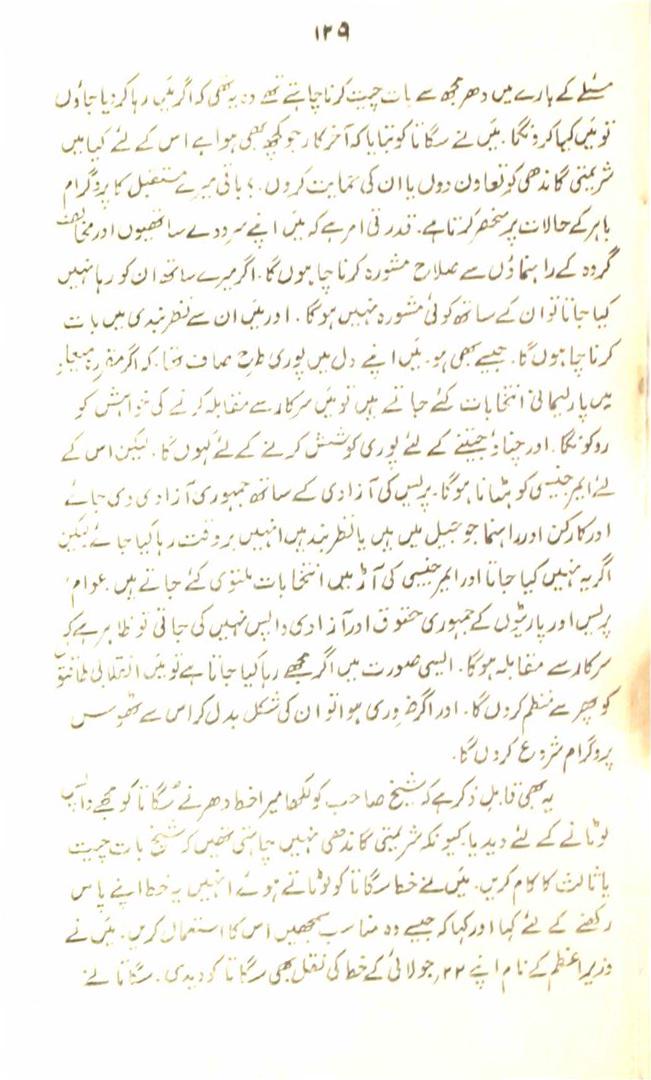 ۱۳۹
مسئلے کے بارے میں دھر مجھ سے بات چیت کرنا چاہتے تھے وہ یہ تھی کہ اگر مَیں رہا کر دیا جاؤں
تو مَیں کیا کرونگا۔ مَیں نے سگاتا کو بتایا کہ آخر کار جو کچھ بھی ہوا ہے اس کے لئے کیا میں
شریمتی گاندھی کو تعاون دوں یا ان کی حمایت کروں۔؟ باقی میرے مستقبل کا پروگرام
باہر کے حالات پر منحصر کرتا ہے۔ قدرتی امر ہے کہ مَیں اپنے سرودے ساتھیوں اور مخالف
گروہ کے راہنماؤں سے صلاح مشورہ کرنا چاہوں گا۔ اگر میرے ساتھ ان کو رہا نہیں
کیا جاتا تو ان کے ساتھ کوئی مشورہ نہیں ہوگا۔ اور مَیں ان سے نظر بندی میں بات
کرنا چاہوں گا۔ جیسے بھی ہو۔ مَیں اپنے دل میں پوری طرح صاف تھا۔ کہ اگر مقررہ میعاد
میں پارلیمانی انتخابات کئے جاتے ہیں تو مَیں سرکار سے مقابلہ کرنے کی خواہش کو
روکونگا۔ اور چناؤ جیتنے کے لئے پوری کوشش کرنے کے لئے کہوں گا۔ لیکن اس کے
لئے ایمرجنسی کو ہٹانا ہوگا۔ پریس کی آزادی کے ساتھ جمہوری آزادی دی جائے
اور کارکن اور راہنما جو جیل میں ہیں یا نظر بند ہیں انہیں بروقت رہا کیا جائے لیکن
اگر یہ نہیں کیا جاتا اور ایمرجنسی کی آڑ میں انتخابات ملتوی کئے جاتے ہیں۔ عوام،
پریس اور پارٹیوں کے جمہوری حقوق اور آزادی واپس نہیں کی جاتی تو ظاہر ہے کہ
سرکار سے مقابلہ ہوگا۔ ایسی صورت میں اگر مجھے رہا کیا جاتا ہے تو مَیں انقلابی طاقتوں
کو پھر سے منظم کروں گا۔ اور اگر ضروری ہوا تو ان کی شکل بدل کر اس سے ٹھوس
پروگرام شروع کروں گا۔
یہ بھی قابل ذکر ہے کہ شیخ صاحب کو لکھا میرا خط دھر نے سگاتا کو مجھے واپس
لوٹانے کے لئے دیدیا۔ کیونکہ شریمتی گاندھی نہیں چاہتی تھیں کہ شیخ بات چیت
یا ثالث کا کام کریں۔ مَیں نے خط سگاتا کو لوٹاتے ہوئے انہیں یہ خط اپنے پاس
رکھنے کے لئے کہا اور کہا کہ جیسے وہ مناسب سمجھیں اس کا استعمال کریں۔ مَیں نے
وزیر اعظم کے نام اپنے ۲۲؍ جولائی کے خط کی نقل بھی سگاتا کو دیدی۔ سگاتا نے